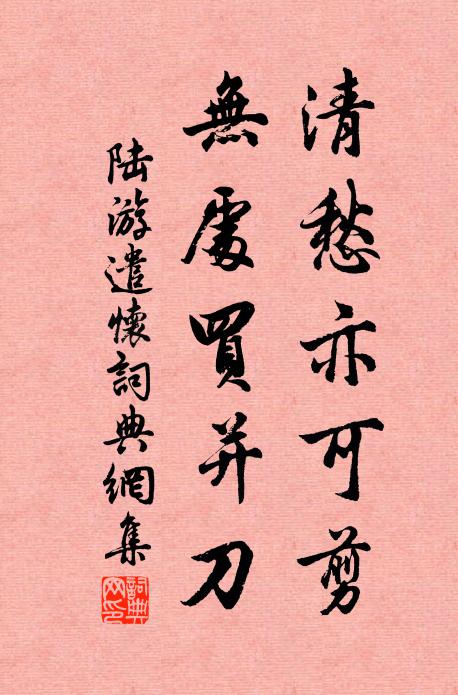 清愁亦可剪
無處買并刀
陸游遣懷詞典網集
詞典網印